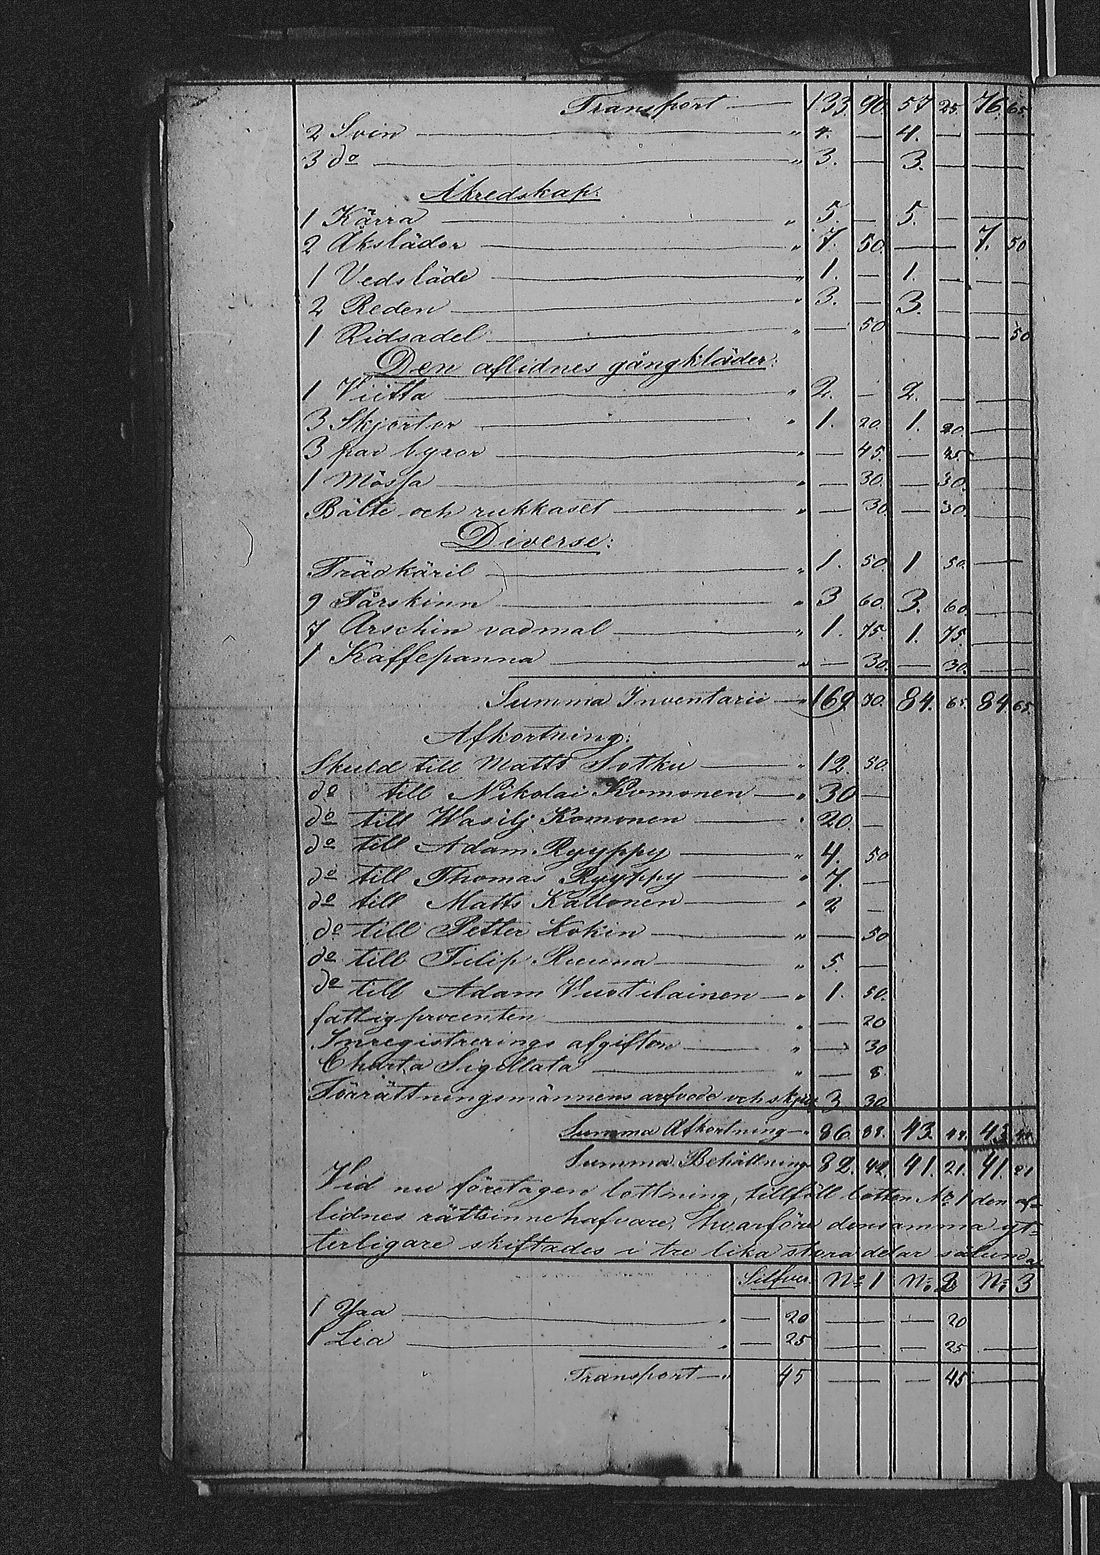 Transport — 133. 90. 57 25. 76. 65.
2 Svin — " 4. — 4. — — —
3 do — " 3. — 3. — — —
Åkredskap.
1 Kärra — " 5. — 5. — — —
2 Åkslädor — " 7. 50. — — 7. 50
1 Vedsläde — " 1. — 1. — — —
2 Reden — " 3. — 3. — — —
1 Ridsadel — " — 50. — — — 50
Den aflidnes gångkläder:
1 Viitta — " 2. — 2. — — —
3 Skjortor — " 1. 20. 1. 20. — —
3 par byxor — " — 45. — 45. — —
1 Mössa — " — 30. — 30. — —
Bälte och rukkaset — " — 30. — 30. — —
Diverse:
Trädkäril — " 1. 50. 1 50. — —
9 Fårskinn — " 3 60. 3. 60. — —
7 Arschin vadmal — " 1. 75. 1. 75. — —
1 Kaffepanna — " — 30. — 30. — —
Summa Inventarii — " 169. 30. 84. 65. 84. 65.
Afkortning:
Skuld till Matts Sotku — " 12. 50.
do till Nikolai Komonen — " 30 —
do till Wasilj Komonen — " 20. —
do till Adam Ryyppy — " 4. 50
do till Thomas Ryyppy — " 7. —
do till Matts Kallonen — " 2 —
do till Petter Kokin — " — 50
do till Filip Ruuna — " 5. —
do till Adam Vuotilainen — " 1. 50.
fattigprocenten — " — 20
Inregistrerings afgiften — " — 30
Charta Sigillata — " — 8
Förrättningsmännens arfvode och skjuts 3 30
Summa Afkortning — " 86. 88. 43. 44. 43. 44.
Summa Behållning " 82. 42. 41. 21. 41. 21
Vid nu företagen lottning, tillföll lotten No 1 den af-
lidnes rättsinnehafvare, hvarföre densamma yt-
terligare skiftades i tre lika stora delar sålunda
Silfver No 1 No 2 No 3
1 Yxa — " — 20 — — 20 —
1 Lia — " — 25 — — 25 —
Transport — " 45 — — 45 —